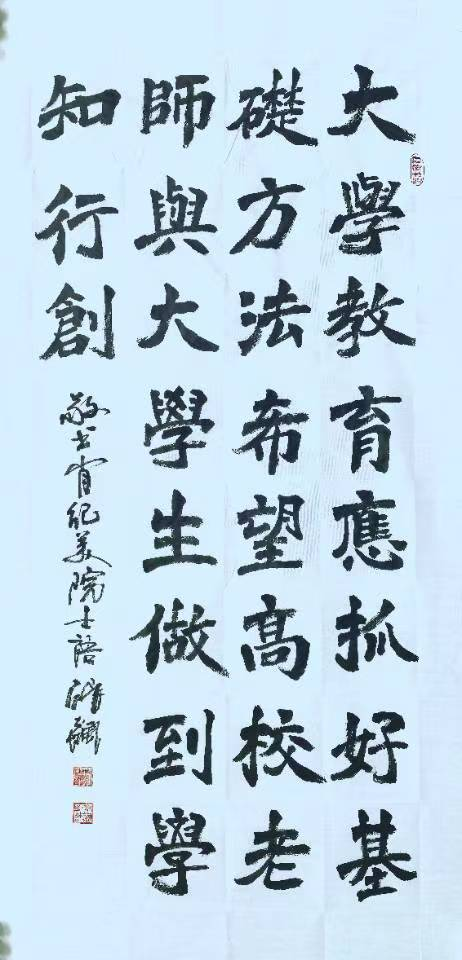 大學教育應抓好基
礎方法希望高校老
師與大學生做到學
知行創
敬书肖纪美院士語